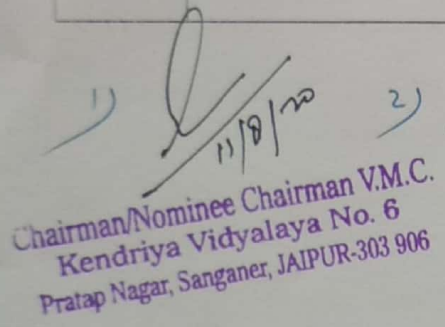 1) 2)
11/8/20
Chairman/Nominee Chairman V.M.C.
Kendriya Vidyalaya No. 6
Pratap Nagar, Sanganer, JAIPUR-303 906